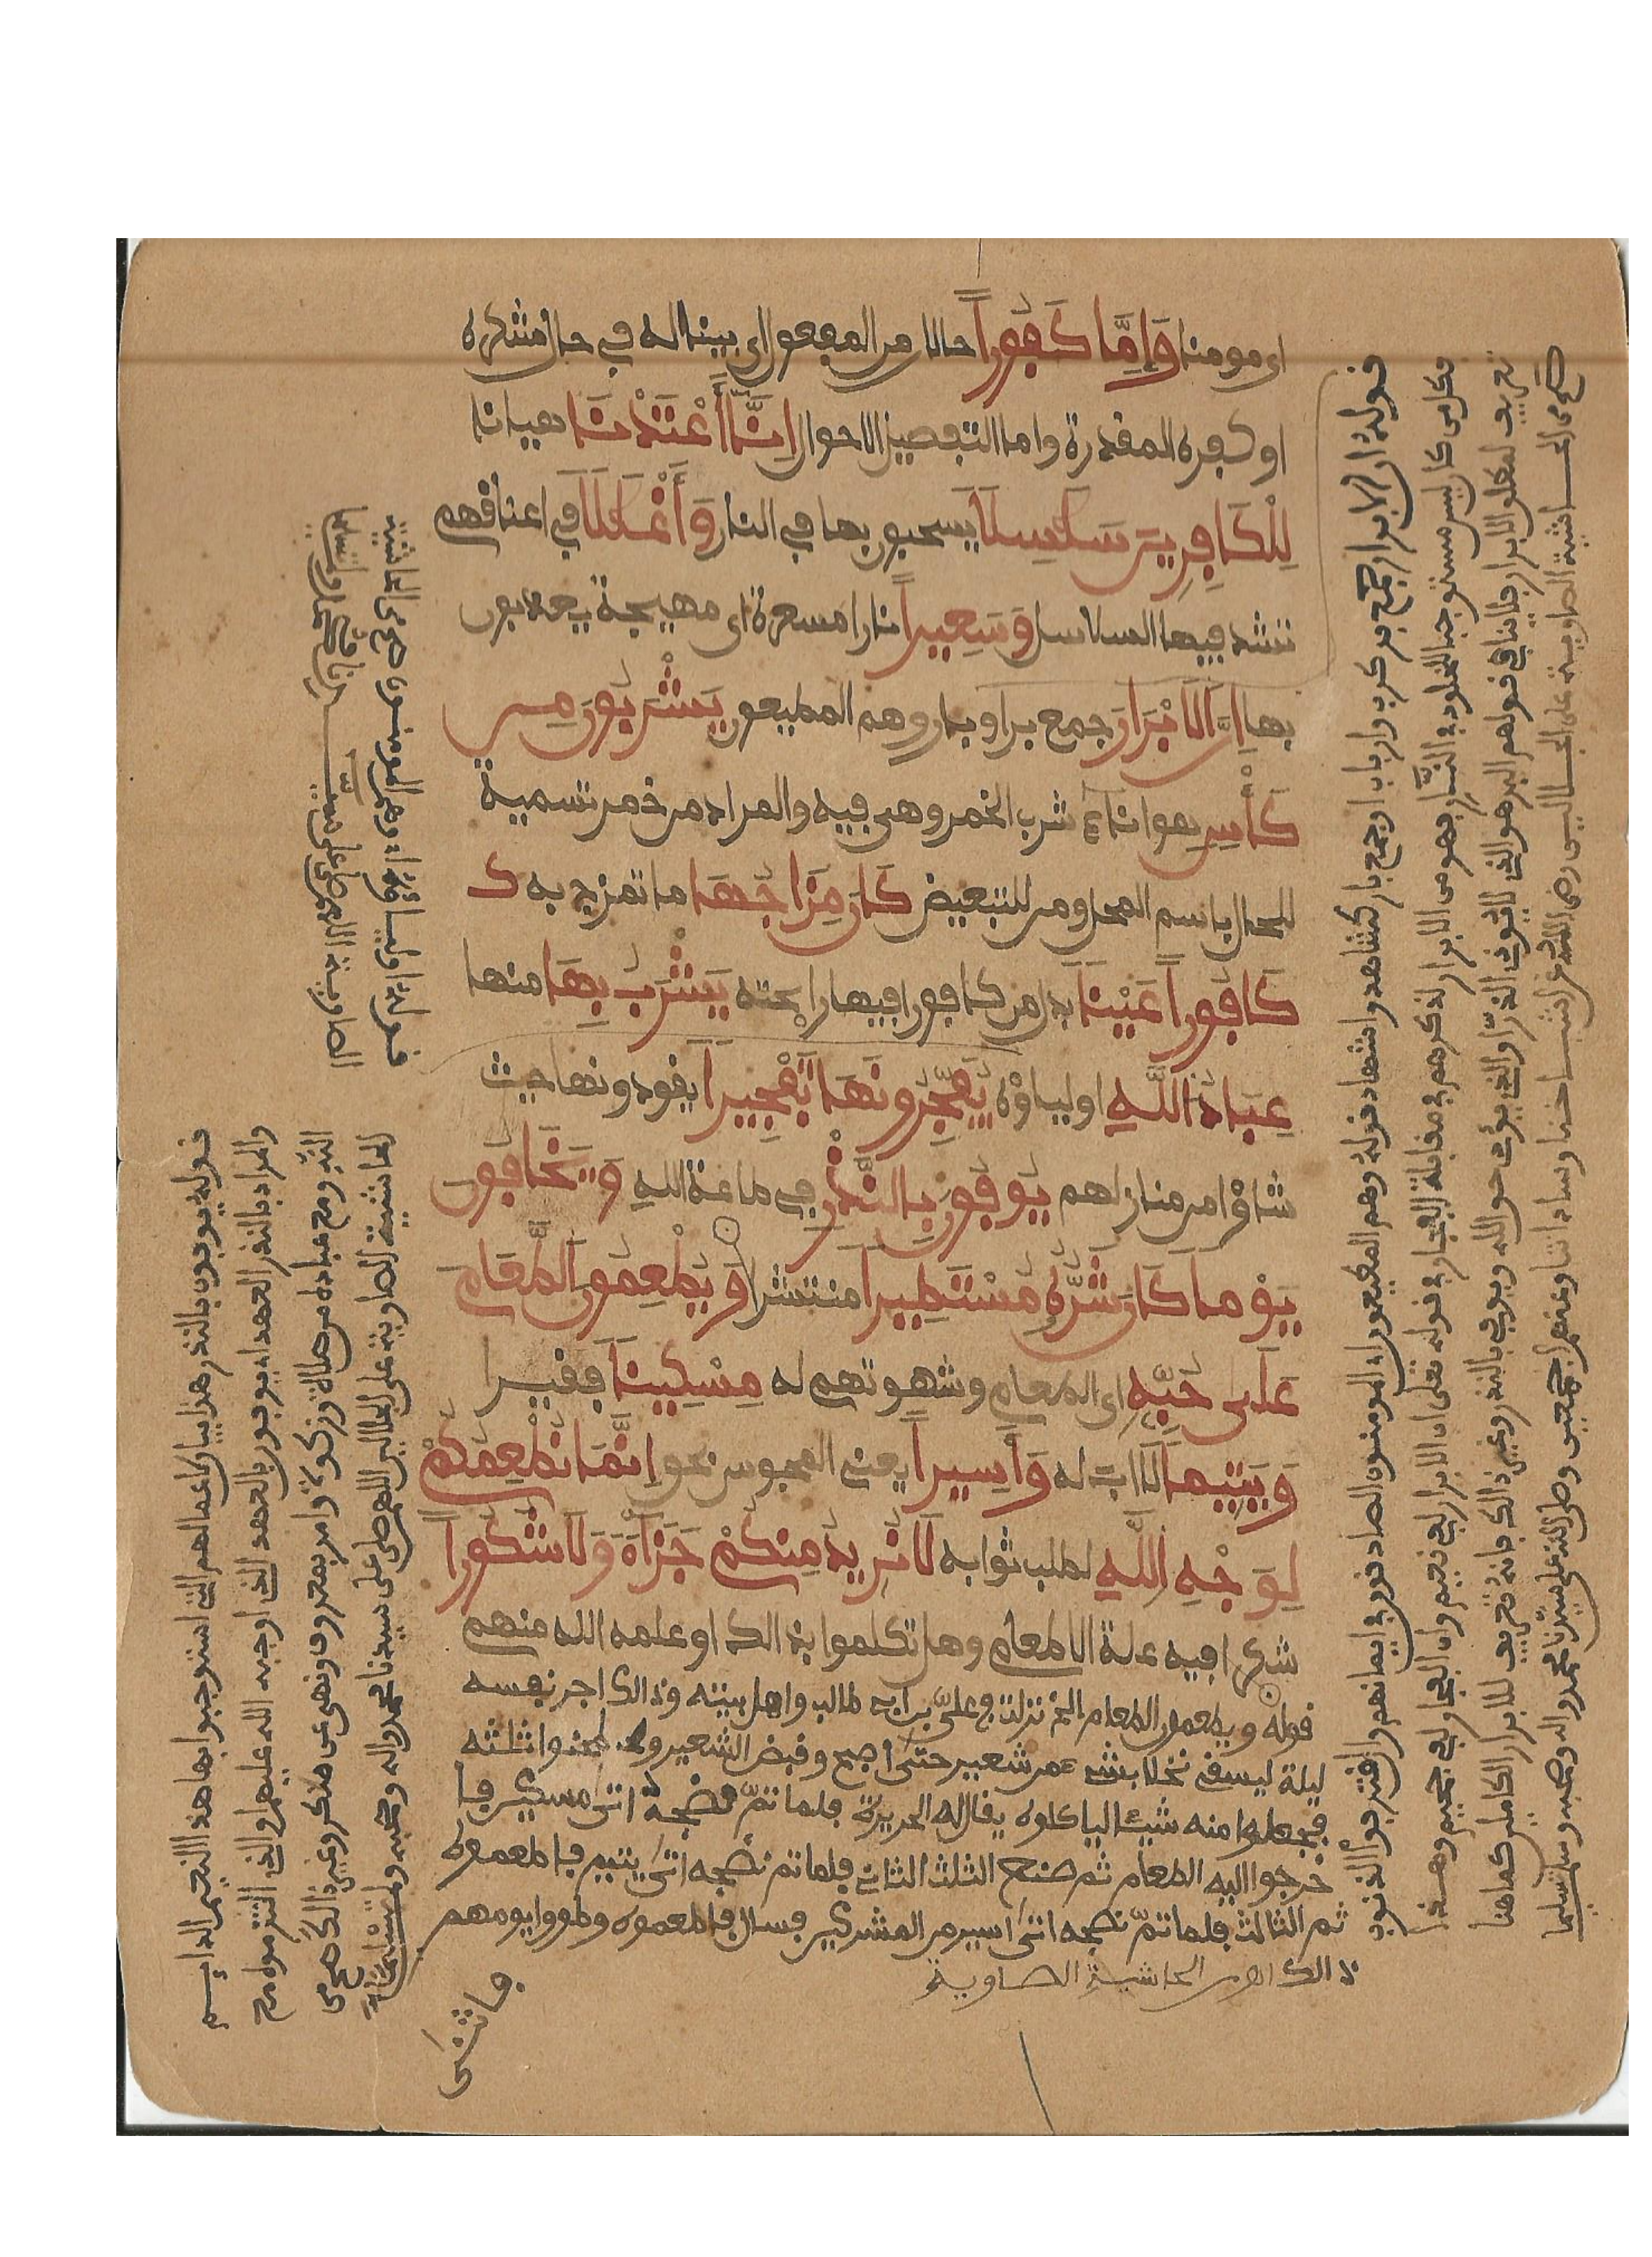 اى مومنا وَإِمَّا كَفُوراً حالان من المفعول اى بينا له فى حال شكره
او كفره المقدرة واما لتفصيل الاحوال إِنَّا أَعْتَدْنَا هيانا
لِلْكَافِرِينَ سَلَسِلَا يسحبون بها فى النار وَأَغْلَلَا فى اعناقهم
تشد فيها السلاسل وَسَعِيراً نارا مسعرة اى مهيجة يعذبون
بها إِنَّ الَابْرَارَ جمع بر او بار وهم المطيعون يَشْرَبُونَ مِن
كَأْسٍ هو اناء شرب الخمر وهى فيه والمراد من خمر تسمية
للحال باسم المحل ومن للتبعيض كَانَ مِزَاجُهَا ما تمزج به ك
كَافُوراً عَيْناً بدل من كافورا فيها رائحته يَشْرَبُ بِهَا منها
عِبَادُ اللَّهِ اولياؤه يُفَجِّرُونَهَا تَفْجِيراً يقودونها حيث
شاؤا من منازلهم يُوفُونَ بِالنَّذْرِ فى طاعة الله وَيَخَافُونَ
يَوْماً كَانَ شَرُّهُ مُسْتَطِيراً منتشرا وَيُطْعِمُونَ الطَّعَامَ
عَلَى حُبِّهِ اى الطعام وشهوتهم له مِسْكِيناً فقيرا
وَيَتِيماً لا اب له وَأَسِيراً يعنى المحبوس بحق إِنَّمَا نُطْعِمُكُمْ
لِوَجْهِ اللَّهِ لطلب ثوابه لَا نُرِيدُ مِنكُمْ جَزَاءً وَلَا شُكُوراً
شكرا فيه علة الاطعام وهل تكلموا بذالك او علمه الله منهم
قوله ويطعمون الطعام الخ نزلت فى علىّ بن ابى طالب واهل بيته وذالك اجر نفسه
ليلة ليسقى نخلا بشىء من شعير حتى اصبح وقبض الشعير وطحنوا ثلثه
فجعلوا منه شيئا لياكلوه يقال له الحريرة فلما تمّ نضجه اتى مسكين فا
خرجوا اليه الطعام ثم صنع الثلث الثانى فلما تم نضجه اتى يتيم فاطعموه
ثم الثالث فلما تمّ نضجه اتى اسير من المشركين فسال فاطعموه وطووا يومهم
ذالك اهـ من الحاشية الصاوية
قوله ان الابرار جمع بر كرب وارباب او جمع بار كشاهد واشهاد قوله وهم المطيعون اى المومنون الصادقون فى ايمانهم وان اقترفوا الذنوب
فكل من كان ليس مستوجبا الخلود فى النار فهو من الابرار لذكرهم فى مقابلة الفجار فى قوله تعلى ان الابرار لفى نعيم وان الفجار لفى جحيم وهذا
تعريف لمطلق الابرار فلا ينافى قولهم البر هو الذى لا يوذى الذر او الذى يؤدى حق الله ويوفى بالنذر وغير ذالك فانه تعريف للابرار الكاملين كما هنا
اهـ من الحاشية الصاوية على الجلالين رضى الله عن اشياخنا وساداتنا وعنهم اجمعين وصلى الله على سيدنا محمد واله وصحبه وسلم تسليما
قوله يوفون بالنذر هذا بيان لاعمالهم التى استوجبوا بها هذا النعيم الدايم
والمراد بالنذر العهد اى يوفون بالعهد الذى اوجبه الله عليهم او الذى التزموه مع
الله ومع عباده من صلاة وزكوة وامر بمعروف ونهى عن منكر وغير ذالك اهـ من
الحاشية الصاوية على الجلالين اللهم صل على سيدنا محمد واله وصحبه وسلم تسليما
فاتنى